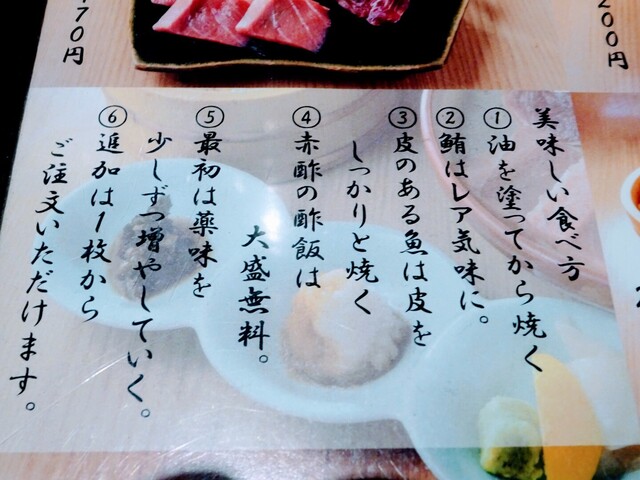 200円
170円
美味しい食べ方
①油を塗ってから焼く
②鮪はレア気味に。
③皮のある魚は皮を
しっかりと焼く
④赤酢の酢飯は
大盛無料。
⑤最初は薬味を
少しずつ増やしていく。
⑥追加は1枚から
ご注文いただけます。